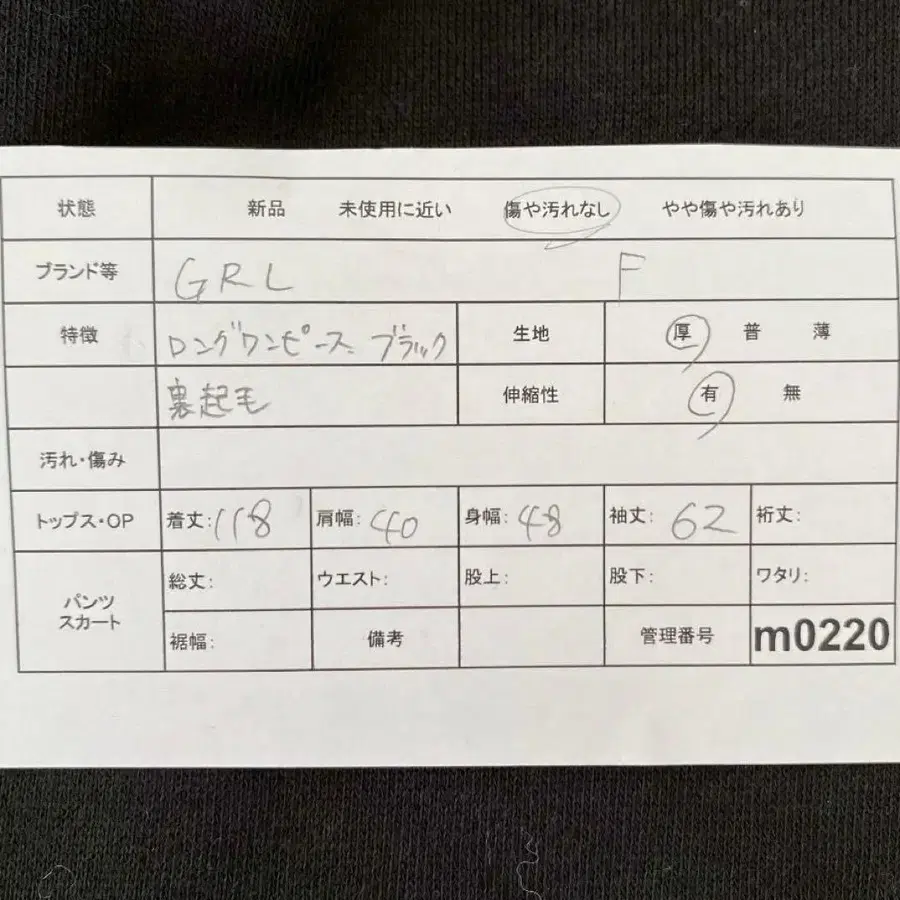 状態 新品 未使用に近い 傷や汚れなし やや傷や汚れあり
ブランド等 GRL F
特徴 ロングワンピース. ブラック 生地 厚 普 薄
裏起毛 伸縮性 有 無
汚れ・傷み
トップス・OP 着丈:118 肩幅:40 身幅:48 袖丈:62 裄丈:
パンツ
スカート
総丈: ウエスト: 股上: 股下: ワタリ:
裾幅: 備考 管理番号 m0220